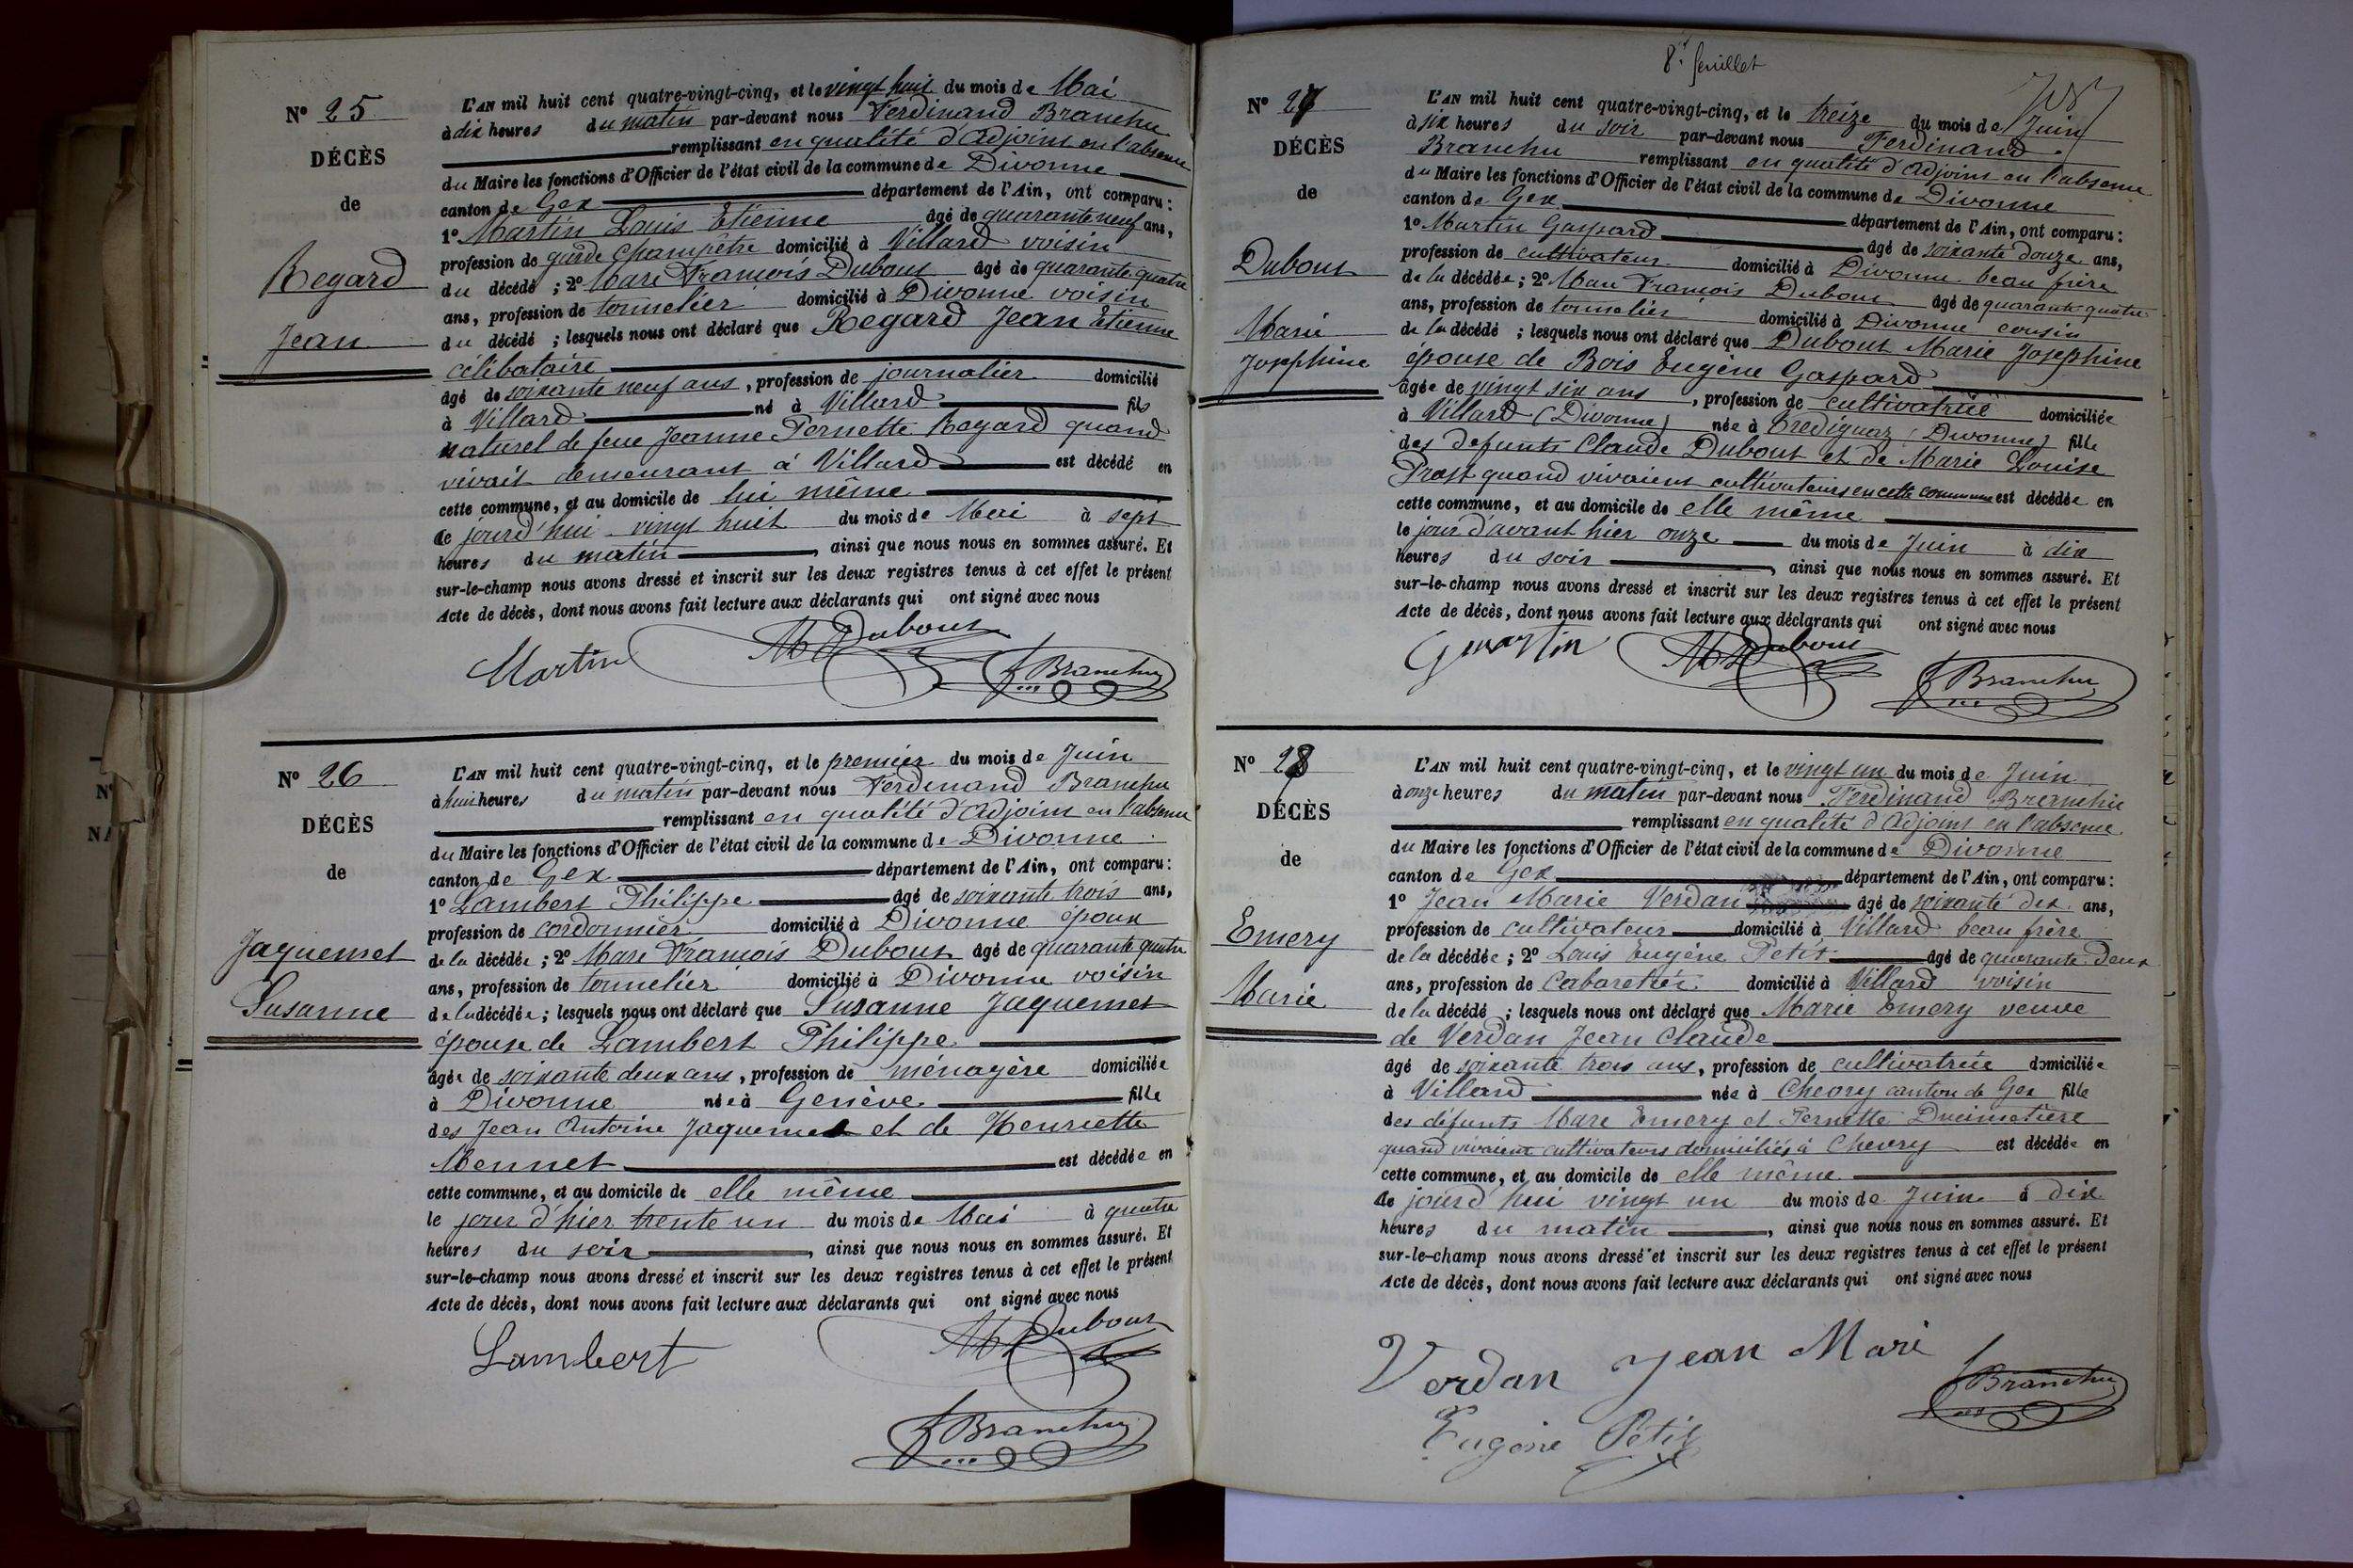 N° 25
DÉCÈS
de
Regard
Jean
L'AN mil huit cent quatre-vingt-cinq, et le vingt huit du mois de Mai
à dix heures du matin par-devant nous Ferdinand Branchu
remplissant en qualité d'Adjoint en l'absence
du Maire les fonctions d'Officier de l'état civil de la commune de Divonne
canton de Gex département de l'Ain, ont comparu :
1° Martin Louis Etienne âgé de quarante neuf ans,
profession de garde champêtre domicilié à Villard voisin
du décédé ; 2° Marc François Dubout âgé de quarante quatre
ans, profession de tonnelier domicilié à Divonne voisin
du décédé ; lesquels nous ont déclaré que Regard Jean Etienne
célibataire
âgé de soixante neuf ans, profession de journalier domicilié
à Villard né à Villard fils
naturel de feue Jeanne Pernette Regard quand
vivait demeurant à Villard est décédé en
cette commune, et au domicile de lui même
le jourd'hui vingt huit du mois de Mai à sept
heures du matin, ainsi que nous nous en sommes assuré. Et
sur-le-champ nous avons dressé et inscrit sur les deux registres tenus à cet effet le présent
Acte de décès, dont nous avons fait lecture aux déclarants qui ont signé avec nous
Martin M F Dubout
F Branchu
N° 26
DÉCÈS
de
Jaquemet
Susanne
L'AN mil huit cent quatre-vingt-cinq, et le premier du mois de Juin
à huit heures du matin par-devant nous Ferdinand Branchu
remplissant en qualité d'Adjoint en l'absence
du Maire les fonctions d'Officier de l'état civil de la commune de Divonne
canton de Gex département de l'Ain, ont comparu :
1° Lambert Philippe âgé de soixante trois ans,
profession de cordonnier domicilié à Divonne époux
de la décédée ; 2° Marc François Dubout âgé de quarante quatre
ans, profession de tonnelier domicilié à Divonne voisin
de la décédée ; lesquels nous ont déclaré que Susanne Jaquemet
épouse de Lambert Philippe
âgée de soixante deux ans, profession de ménagère domiciliée
à Divonne née à Genève fille
des Jean Antoine Jaquemet et de Henriette
Mennet est décédée en
cette commune, et au domicile de elle même
le jour d'hier trente un du mois de Mai à quatre
heures du soir, ainsi que nous nous en sommes assuré. Et
sur-le-champ nous avons dressé et inscrit sur les deux registres tenus à cet effet le présent
Acte de décès, dont nous avons fait lecture aux déclarants qui ont signé avec nous
Lambert M F Dubout
F Branchu
8e feuillet
N° 27
DÉCÈS
de
Dubout
Marie
Josephine
L'AN mil huit cent quatre-vingt-cinq, et le treize du mois de Juin
à six heures du soir par-devant nous Ferdinand
Branchu remplissant en qualité d'Adjoint en l'absence
du Maire les fonctions d'Officier de l'état civil de la commune de Divonne
canton de Gex département de l'Ain, ont comparu :
1° Martin Gaspard âgé de soixante douze ans,
profession de cultivateur domicilié à Divonne beau frère
de la décédée ; 2° Marc François Dubout âgé de quarante quatre
ans, profession de tonnelier domicilié à Divonne cousin
de la décédé ; lesquels nous ont déclaré que Dubout Marie Josephine
épouse de Bois Eugène Gaspard
âgée de vingt six ans, profession de cultivatrice domiciliée
à Villard (Divonne) née à Crédignaz (Divonne) fille
des defunts Claude Dubout et de Marie Louise
Prost quand vivaient cultivateurs en cette commune est décédée en
cette commune, et au domicile de elle même
le jour d'avant hier onze du mois de Juin à dix
heures du soir, ainsi que nous nous en sommes assuré. Et
sur-le-champ nous avons dressé et inscrit sur les deux registres tenus à cet effet le présent
Acte de décès, dont nous avons fait lecture aux déclarants qui ont signé avec nous
G martin M F Dubout
F Branchu
N° 28
DÉCÈS
de
Emery
Marie
L'AN mil huit cent quatre-vingt-cinq, et le vingt un du mois de Juin
à onze heures du matin par-devant nous Ferdinand Branchu
remplissant en qualité d'Adjoint en l'absence
du Maire les fonctions d'Officier de l'état civil de la commune de Divonne
canton de Gex département de l'Ain, ont comparu :
1° Jean Marie Verdan âgé de soixante dix ans,
profession de cultivateur domicilié à Villard beau frère
de la décédée ; 2° Louis Eugène Petit âgé de quarante deux
ans, profession de Cabaretier domicilié à Villard voisin
de la décédé ; lesquels nous ont déclaré que Marie Emery veuve
de Verdan Jean Claude
âgé de soixante trois ans, profession de cultivatrice domiciliée
à Villard née à Chevry canton de Gex fille
des défunts Marc Emery et Pernette Ducimetière
quand vivaient cultivateurs domiciliés à Chevry est décédée en
cette commune, et au domicile de elle même
le jourd'hui vingt un du mois de Juin à dix
heures du matin, ainsi que nous nous en sommes assuré. Et
sur-le-champ nous avons dressé et inscrit sur les deux registres tenus à cet effet le présent
Acte de décès, dont nous avons fait lecture aux déclarants qui ont signé avec nous
Verdan Jean Mari
F Branchu
Eugène Petit